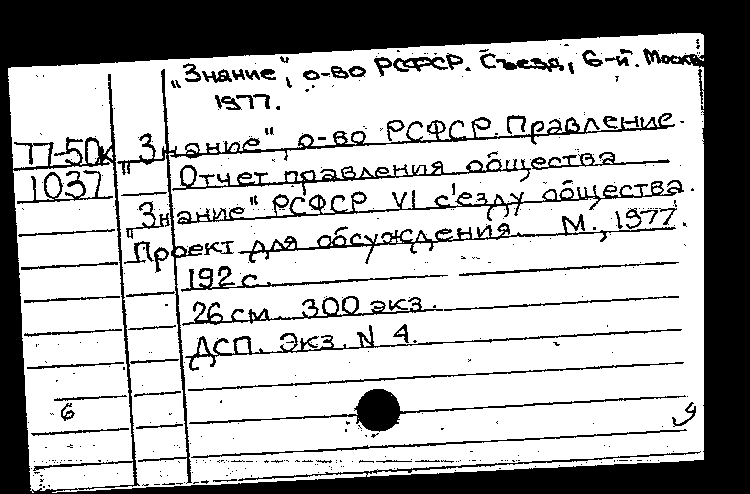 "Знание", о-во РСФСР. Съезд, 6-й. Москва
1977.
77-50к "Знание", о-во РСФСР. Правление.
1037 Отчет правления общества
"Знание" РСФСР VI с'езду общества.
Проект для обсуждения. М., 1977.
192 с.
26 см. 300 экз.
ДСП. Экз. N 4.
6